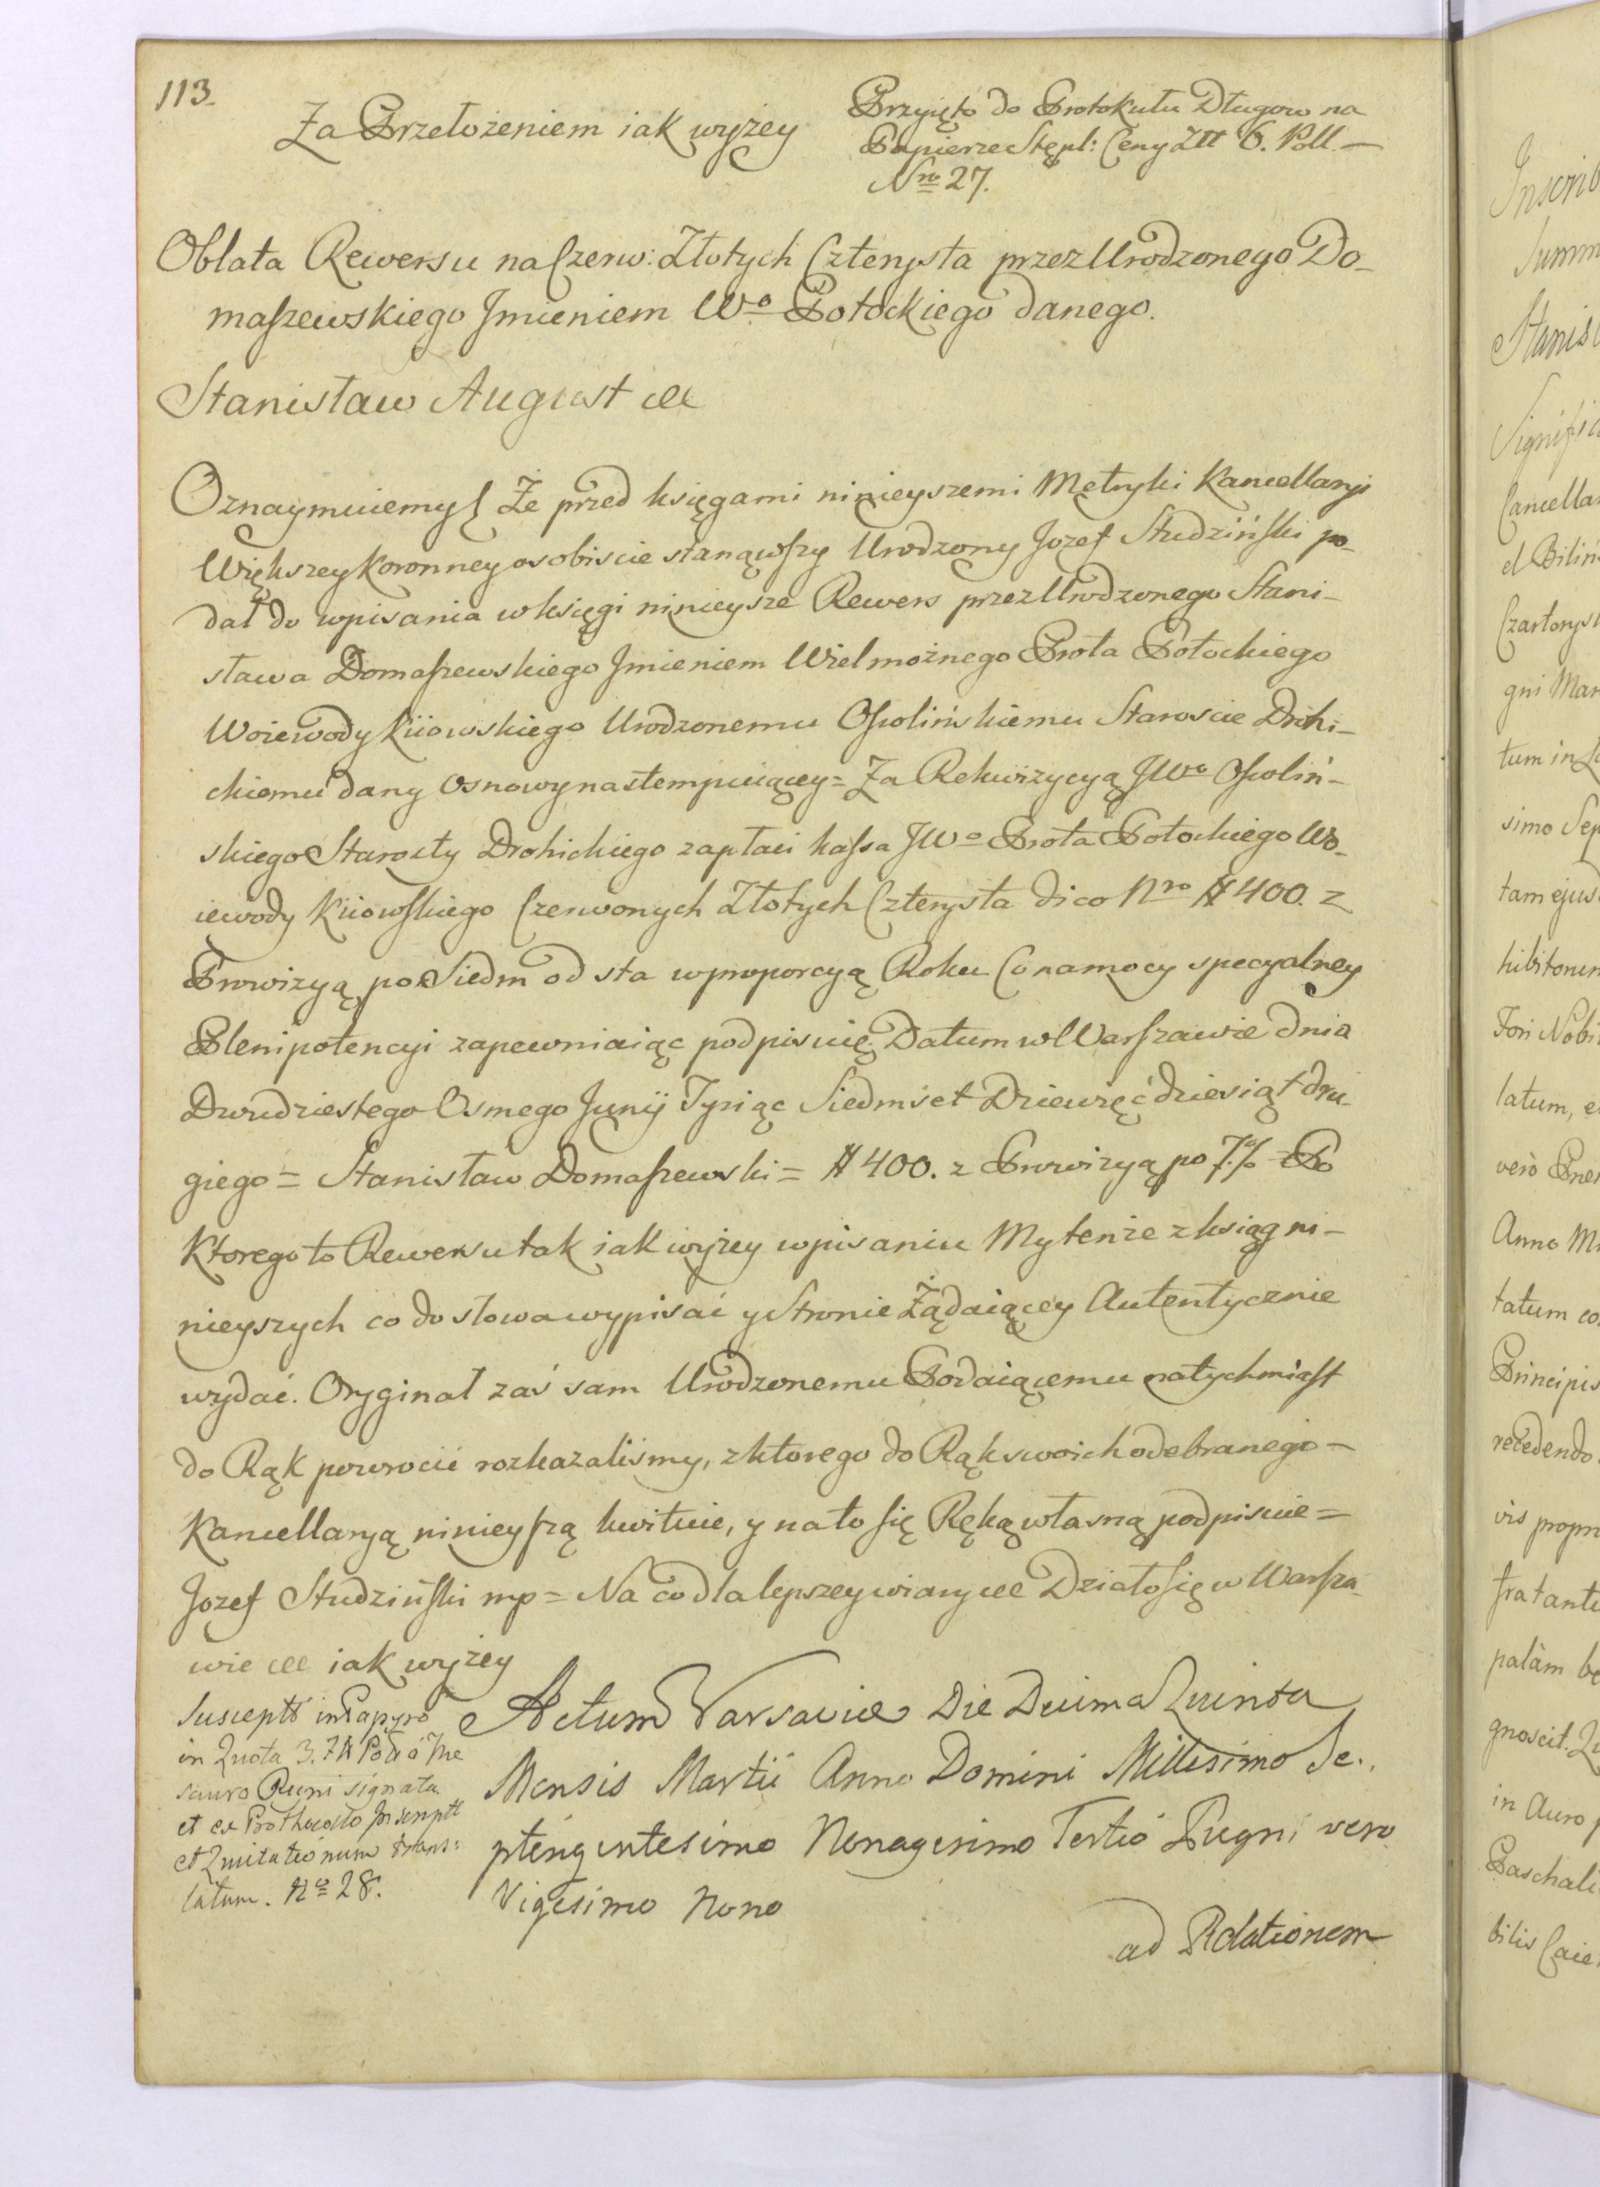 113.
Za Przełożeniem iak wyżey
Przyięto do Protokułu Długow na
Papierze Stępl: Ceny Złł 6. Poll.—
Nro 27.
Oblata Rewersu na Czerw: Złotych Czterysta przez Urodzonego Do-
maszewskiego Imieniem Wo Potockiego danego.
Stanisław August &c
Oznaymuiemy Że przed księgami ninieyszemi Metryki Kancellaryi
Większey Koronney osobiscie stanąwszy Urodzony Jozef Studziński po-
dał do wpisania w księgi ninieysze Rewers przez Urodzonego Stani-
sława Domaszewskiego Imieniem Wielmożnego Prota Potockiego
Woiewody Kiiowskiego Urodzonemu Ossolińskiemu Staroscie Drohi-
ckiemu dany Osnowy nastempuiącey = Za Rekwizycyą JWo Ossoliń-
skiego Starosty Drohickiego zapłaci kassa JWo Prota Potockiego Wo-
iewody Kiiowskiego Czerwonych Złotych Czterysta dico Nro # 400. z
Prowizyą po Siedm od sta w proporcyą Roku Co na mocy specyalney
Plenipotencyi zapewniaiąc podpisuię. Datum w Warszawie dnia
Dwudziestego Osmego Junij Tysiąc Siedmset Dziewięćdziesiąt dru-
giego = Stanisław Domaszewski = # 400. z Prowizyą po 7.% - Po
Ktorego to Rewersu tak iak wyżey wpisaniu My tenże z ksiąg ni-
nieyszych co do słowa wypisać y Stronie Żądaiącey Autentycznie
wydać. Oryginał zaś sam Urodzonemu Podaiącemu natychmiast
do Rąk powrocić rozkazaliśmy, z ktorego do Rąk swoich odebranego —
Kancellaryą ninieyszą kwituie, y na to się Ręką własną podpisuie =
Jozef Studziński mp = Na co dla lepszey wiary &c Działo się w Warsza-
wie &c iak wyżey
Susceptt in Papyro
in Quota 3.
sauro Regni signata
et ex Prothocollo Inscriptt
et Quitationum trans:
latum. No 28.
Actum Varsaviæ Die Decima Quinta
Mensis Martii Anno Domini Millesimo Se-
ptengentesimo Nonagesimo Tertio Regni vero
Vigesimo Nono
ad Relationem
Inscrib
Summ
Stanisl
Signific
Cancella
el Biliń
Czartorys
gni Mar
tum in
simo Sep
tam ejus
hibitorum
Fori Nobi
latum, e
vero
Anno M
tatum co
Principis
recedendo
vis propr
fra tante
palàm be
gnoscit. Qu
in Auro p
Paschali
bilis Caie